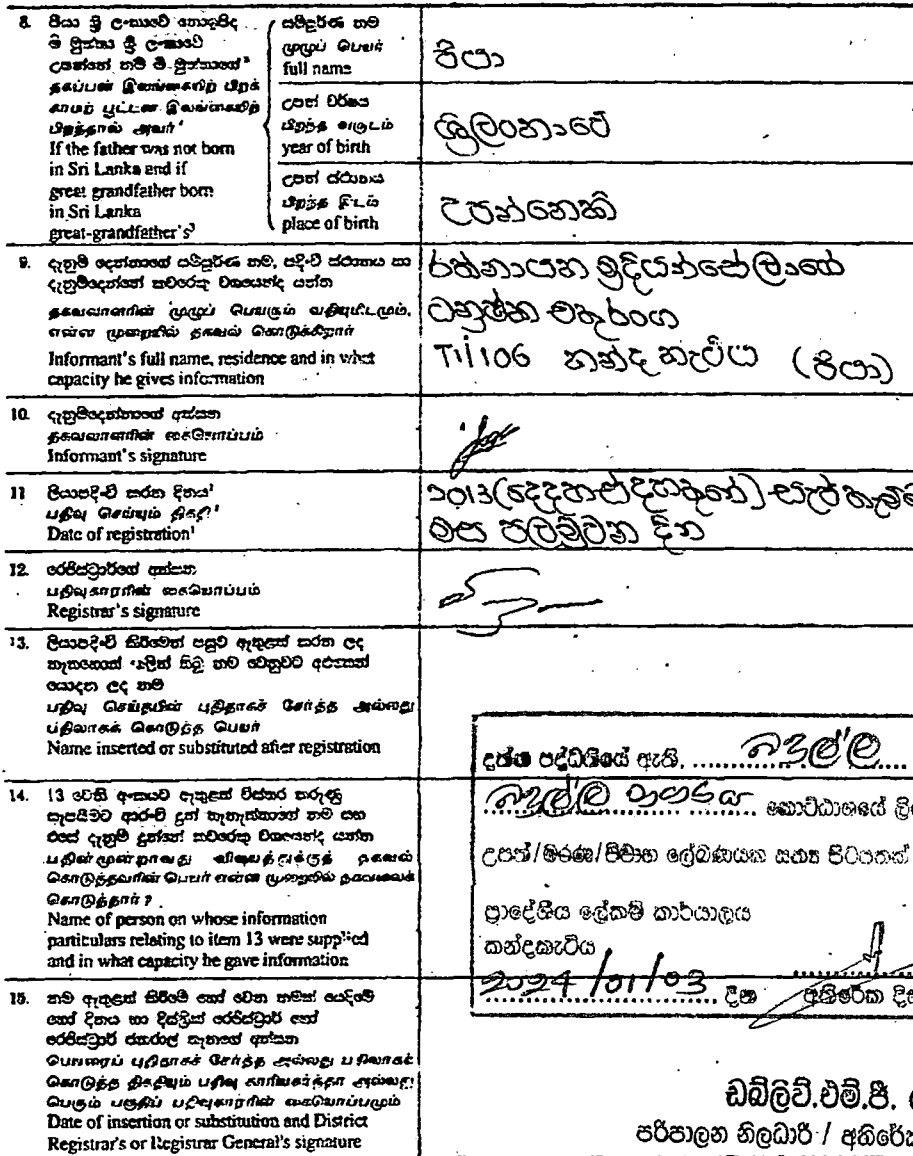 8. පියා ශ්‍රී ලංකාවේ නොඉපිද
මී මුත්තා ශ්‍රී ලංකාවේ
උපන්නේ නම් මී මුත්තාගේ³
தகப்பன் இலங்கையிற் பிறக்
காமற் பூட்டன் இலங்கையிற்
பிறந்தால் அவர்³
If the father was not born
in Sri Lanka and if
great grandfather born
in Sri Lanka
great-grandfather's³
සම්පූර්ණ නම
முழுப் பெயர்
full name
පියා
උපන් වර්ෂය
பிறந்த வருடம்
year of birth
ශ්‍රීලංකාවේ
උපන් ස්ථානය
பிறந்த இடம்
place of birth
උපන්නෙකි
9. දැනුම් දෙන්නාගේ සම්පූර්ණ නම, පදිංචි ස්ථානය හා
දැනුම්දෙන්නේ කවරෙකු වශයෙන්ද යන්න
தகவலாளரின் முழுப் பெயரும் வதிவிடமும்,
என்ன முறையில் தகவல் கொடுக்கிறார்
Informant's full name, residence and in what
capacity he gives information
රත්නායක මුදියන්සේලාගේ
ධනුෂ්ක චතුරංග
T11106 කන්දකැටිය (පියා)
10. දැනුම්දෙන්නාගේ අත්සන
தகவலாளரின் கையொப்பம்
Informant's signature
11 ලියාපදිංචි කරන දිනය¹
பதிவு செய்யும் திகதி¹
Date of registration¹
2013(දෙදහස් දහතුනේ) සැප්තැම්බ
මස පලමුවන දින
12. රෙජිස්ට්‍රාර්ගේ අත්සන
பதிவுகாரரின் கையொப்பம்
Registrar's signature
13. ලියාපදිංචි කිරීමෙන් පසුව ඇතුළත් කරන ලද
නැතහොත් පළින් තිබූ නම වෙනුවට අළුතෙන්
යොදන ලද නම
பதிவு செய்தபின் புதிதாகச் சேர்த்த அல்லது
பதிலாகக் கொடுத்த பெயர்
Name inserted or substituted after registration
14. 13 වෙනි අංකයට ඇතුළත් විස්තර කරුණු
සැපයීමට ආරංචි දුන් තැනැත්තාගේ නම සහ
එසේ දැනුම් දුන්නේ කවරෙකු වශයෙන්ද යන්න
பதின்மூன்றாவது விஷயத்துக்குத் தகவல்
கொடுத்தவரின் பெயர் என்ன முறையில் தகவலைக்
கொடுத்தார் ?
Name of person on whose information
particulars relating to item 13 were supplied
and in what capacity he gave information
15. නම ඇතුළත් කිරීමේ හෝ වෙන නමක් යෙදීමේ
හෝ දිනය හා දිස්ත්‍රික් රෙජිස්ට්‍රාර් හෝ
රෙජිස්ට්‍රාර් ජනරාල් තැනගේ අත්සන
பெயரைப் புதிதாகச் சேர்த்த அல்லது பதிலாகக்
கொடுத்த திகதியும் பதிவு காரியகர்த்தா அல்லது
பெரும் பகுதிப் பதிவுகாரரின் கையொப்பமும்
Date of insertion or substitution and District
Registrar's or Registrar General's signature
පද්ධතියේ ඇති, බදුල්ල
බදුල්ල කොට්ඨාශයේ ලි
උපත්/මරණ/විවාහ ලේඛණයක සත්‍ය පිටපතක්
ප්‍රාදේශීය ලේකම් කාර්යාලය
කන්දකැටිය
2024/01/03 දින අතිරේක දි
ඩබ්ලිව්.එම්.පී.
පරිපාලන නිලධාරී / අතිරේක